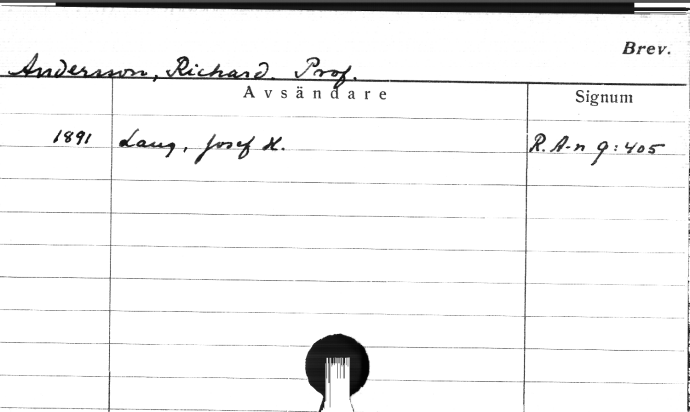 Brev.
Andersson, Richard. Prof.
Avsändare Signum
1891 Lang, Josef H. R. A-n 9:405